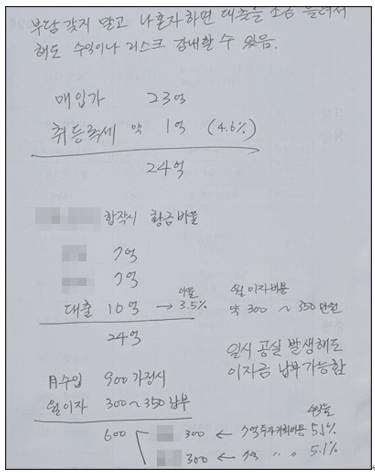 부담 갖지 말고 나혼자하면 대출을 조금 늘려서
해도 수익이나 리스크 감내할 수 있음.
매입가 23억
취등록세 약 1억 (4.6%)
24억
합작시 황금비율
7억
7억
대출 10억 → 이율 3.5% 월이자비용 약 300 ~ 350만원
24억
일시 공실 발생해도
이자금 납부가능함
月수입 900 가정시
월이자 300~350 납부
수익율
600 300 ← 7억 투자기회비용 5.1%
300 ← 7억 〃 〃 5.1%